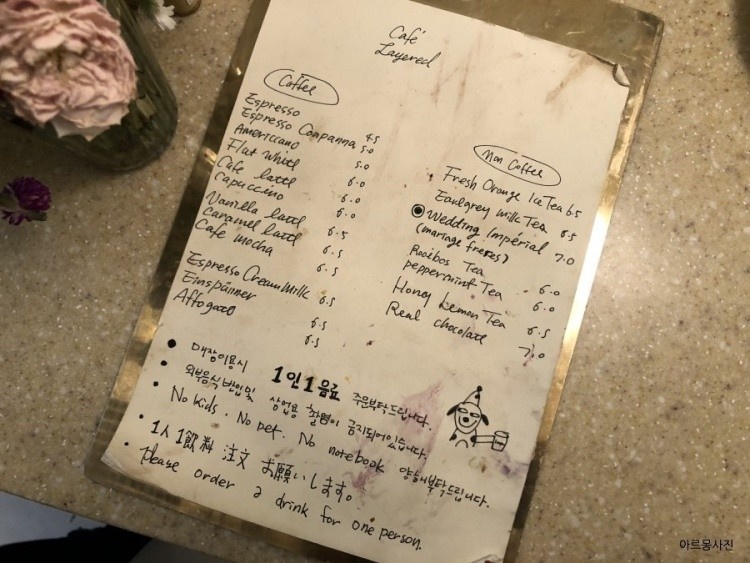 Café
Layered
Coffee
Espresso 4.5
Espresso Companna 5.0
Americano 5.0
Flat white 6.0
Cafe latte 6.0
Capuccino 6.0
Vanilla latte 6.5
Caramel latte 6.5
Cafe mocha 6.5
Espresso Cream Milk 6.5
Einspänner 6.5
Affogato 6.5
Non Coffee
Fresh Orange Ice Tea 6.5
Earlgrey Milk Tea 6.5
Wedding Imperial 7.0
(mariage freres)
Rooibos Tea 6.0
peppermint Tea 6.0
Honey Lemon Tea 6.5
Real chocolate 7.0
• 매장이용시 1인1음료 주문부탁드립니다.
• 외부음식반입및 상업용 촬영이 금지되어있습니다.
• No kids. No pet. No notebook 양해부탁드립니다.
• 1人1飲料 注文 お願いします。
• please order a drink for one person.
아르몽사진